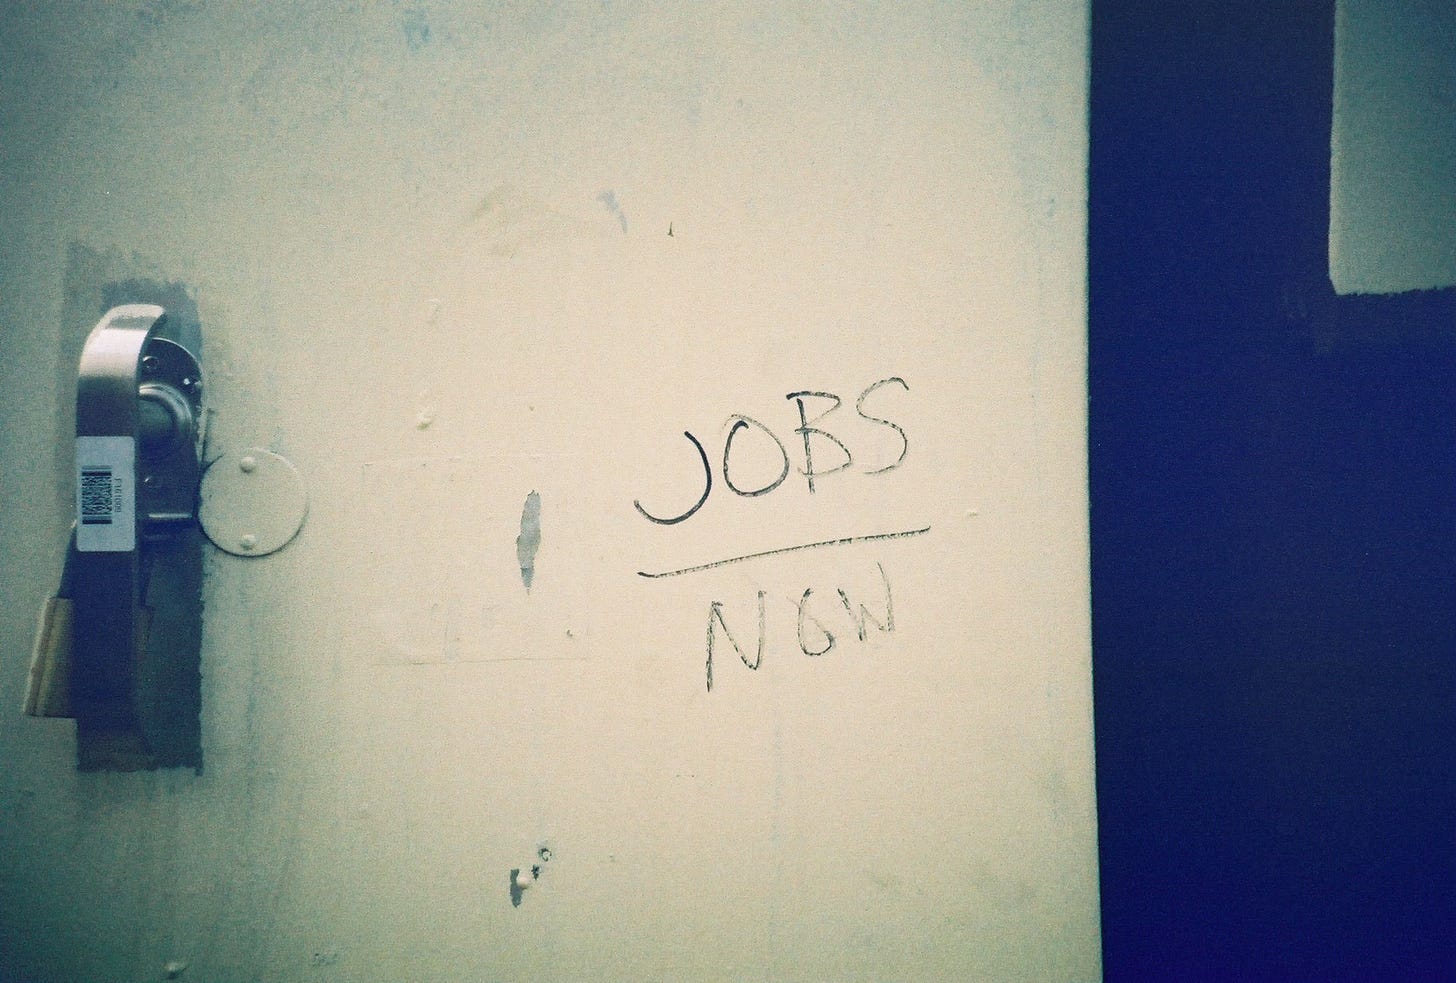 JOBS
NOW